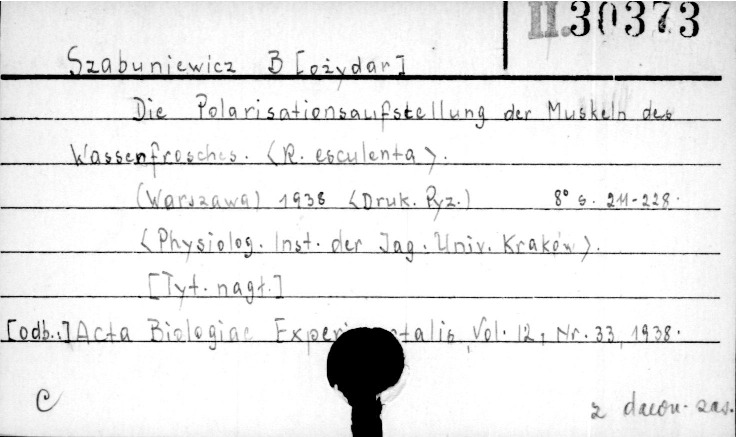 II.30373
Szabuniewicz B[ożydar]
Die Polarisationsaufstellung der Muskeln des
Wasserfrosches. <R. esculenta>.
(Warszawa) 1938 <Druk. Pyz.) 8° s. 211-228.
<Physiolog. Inst. der Jag. Univ. Kraków>.
[Tyt. nagł.]
[odb.:] Acta Biologiae Experimentalis, Vol. 12, Nr. 33, 1938.
C
z daron. zas.